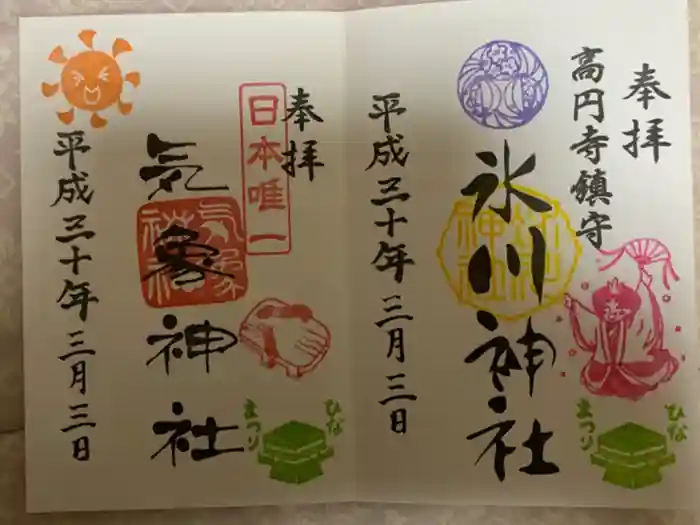 奉拝
高円寺鎮守
氷川神社
平成三十年三月三日
ひな
まつり
奉拝
日本唯一
気象神社
平成三十年三月三日
ひな
まつり